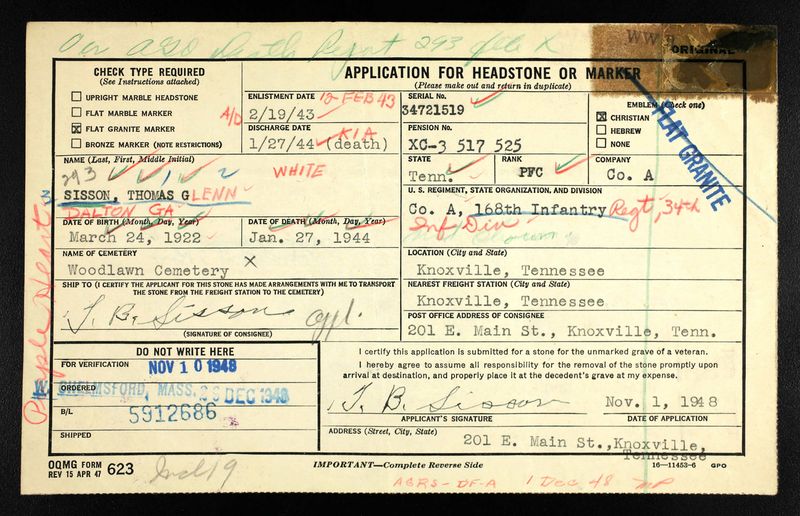 Per AGO Death Report 293 file X
WW 2
ORIGINAL
CHECK TYPE REQUIRED
(See Instructions attached)
UPRIGHT MARBLE HEADSTONE
FLAT MARBLE MARKER
X FLAT GRANITE MARKER
BRONZE MARKER (NOTE RESTRICTIONS)
APPLICATION FOR HEADSTONE OR MARKER
(Please make out and return in duplicate)
ENLISTMENT DATE 12 FEB 43
A/D 2/19/43
DISCHARGE DATE KIA
1/27/44 (death)
SERIAL No.
34721519
PENSION No.
XC-3 517 525
EMBLEM (Check one)
X CHRISTIAN
HEBREW
NONE
FLAT GRANITE
NAME (Last, First, Middle Initial)
293
WHITE
SISSON, THOMAS GLENN
DALTON GA
STATE
Tenn.
RANK
PFC
COMPANY
Co. A
U. S. REGIMENT, STATE ORGANIZATION, AND DIVISION
Co. A, 168th Infantry Regt, 34th
Inf Div
DATE OF BIRTH (Month, Day, Year)
March 24, 1922
DATE OF DEATH (Month, Day, Year)
Jan. 27, 1944
NAME OF CEMETERY
Woodlawn Cemetery X
LOCATION (City and State)
Knoxville, Tennessee
SHIP TO (I CERTIFY THE APPLICANT FOR THIS STONE HAS MADE ARRANGEMENTS WITH ME TO TRANSPORT
THE STONE FROM THE FREIGHT STATION TO THE CEMETERY)
T. B. Sisson appl.
(SIGNATURE OF CONSIGNEE)
NEAREST FREIGHT STATION (City and State)
Knoxville, Tennessee
POST OFFICE ADDRESS OF CONSIGNEE
201 E. Main St., Knoxville, Tenn.
Purple Heart
DO NOT WRITE HERE
FOR VERIFICATION NOV 10 1948
ORDERED
W. CHELMSFORD, MASS. DEC 1948
B/L 5912686
SHIPPED
I certify this application is submitted for a stone for the unmarked grave of a veteran.
I hereby agree to assume all responsibility for the removal of the stone promptly upon
arrival at destination, and properly place it at the decedent's grave at my expense.
T. B. Sisson Nov. 1, 1948
APPLICANT'S SIGNATURE DATE OF APPLICATION
ADDRESS (Street, City, State)
201 E. Main St., Knoxville,
Tennessee
OQMG FORM
REV 15 APR 47 623
IMPORTANT—Complete Reverse Side
16—11453-6 GPO
AGRS-DF-A 1 Dec 48 MP